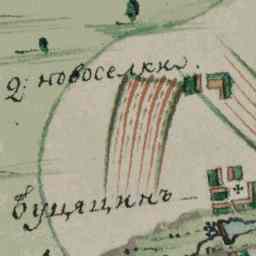 д: новоселки.
буцяцинъ